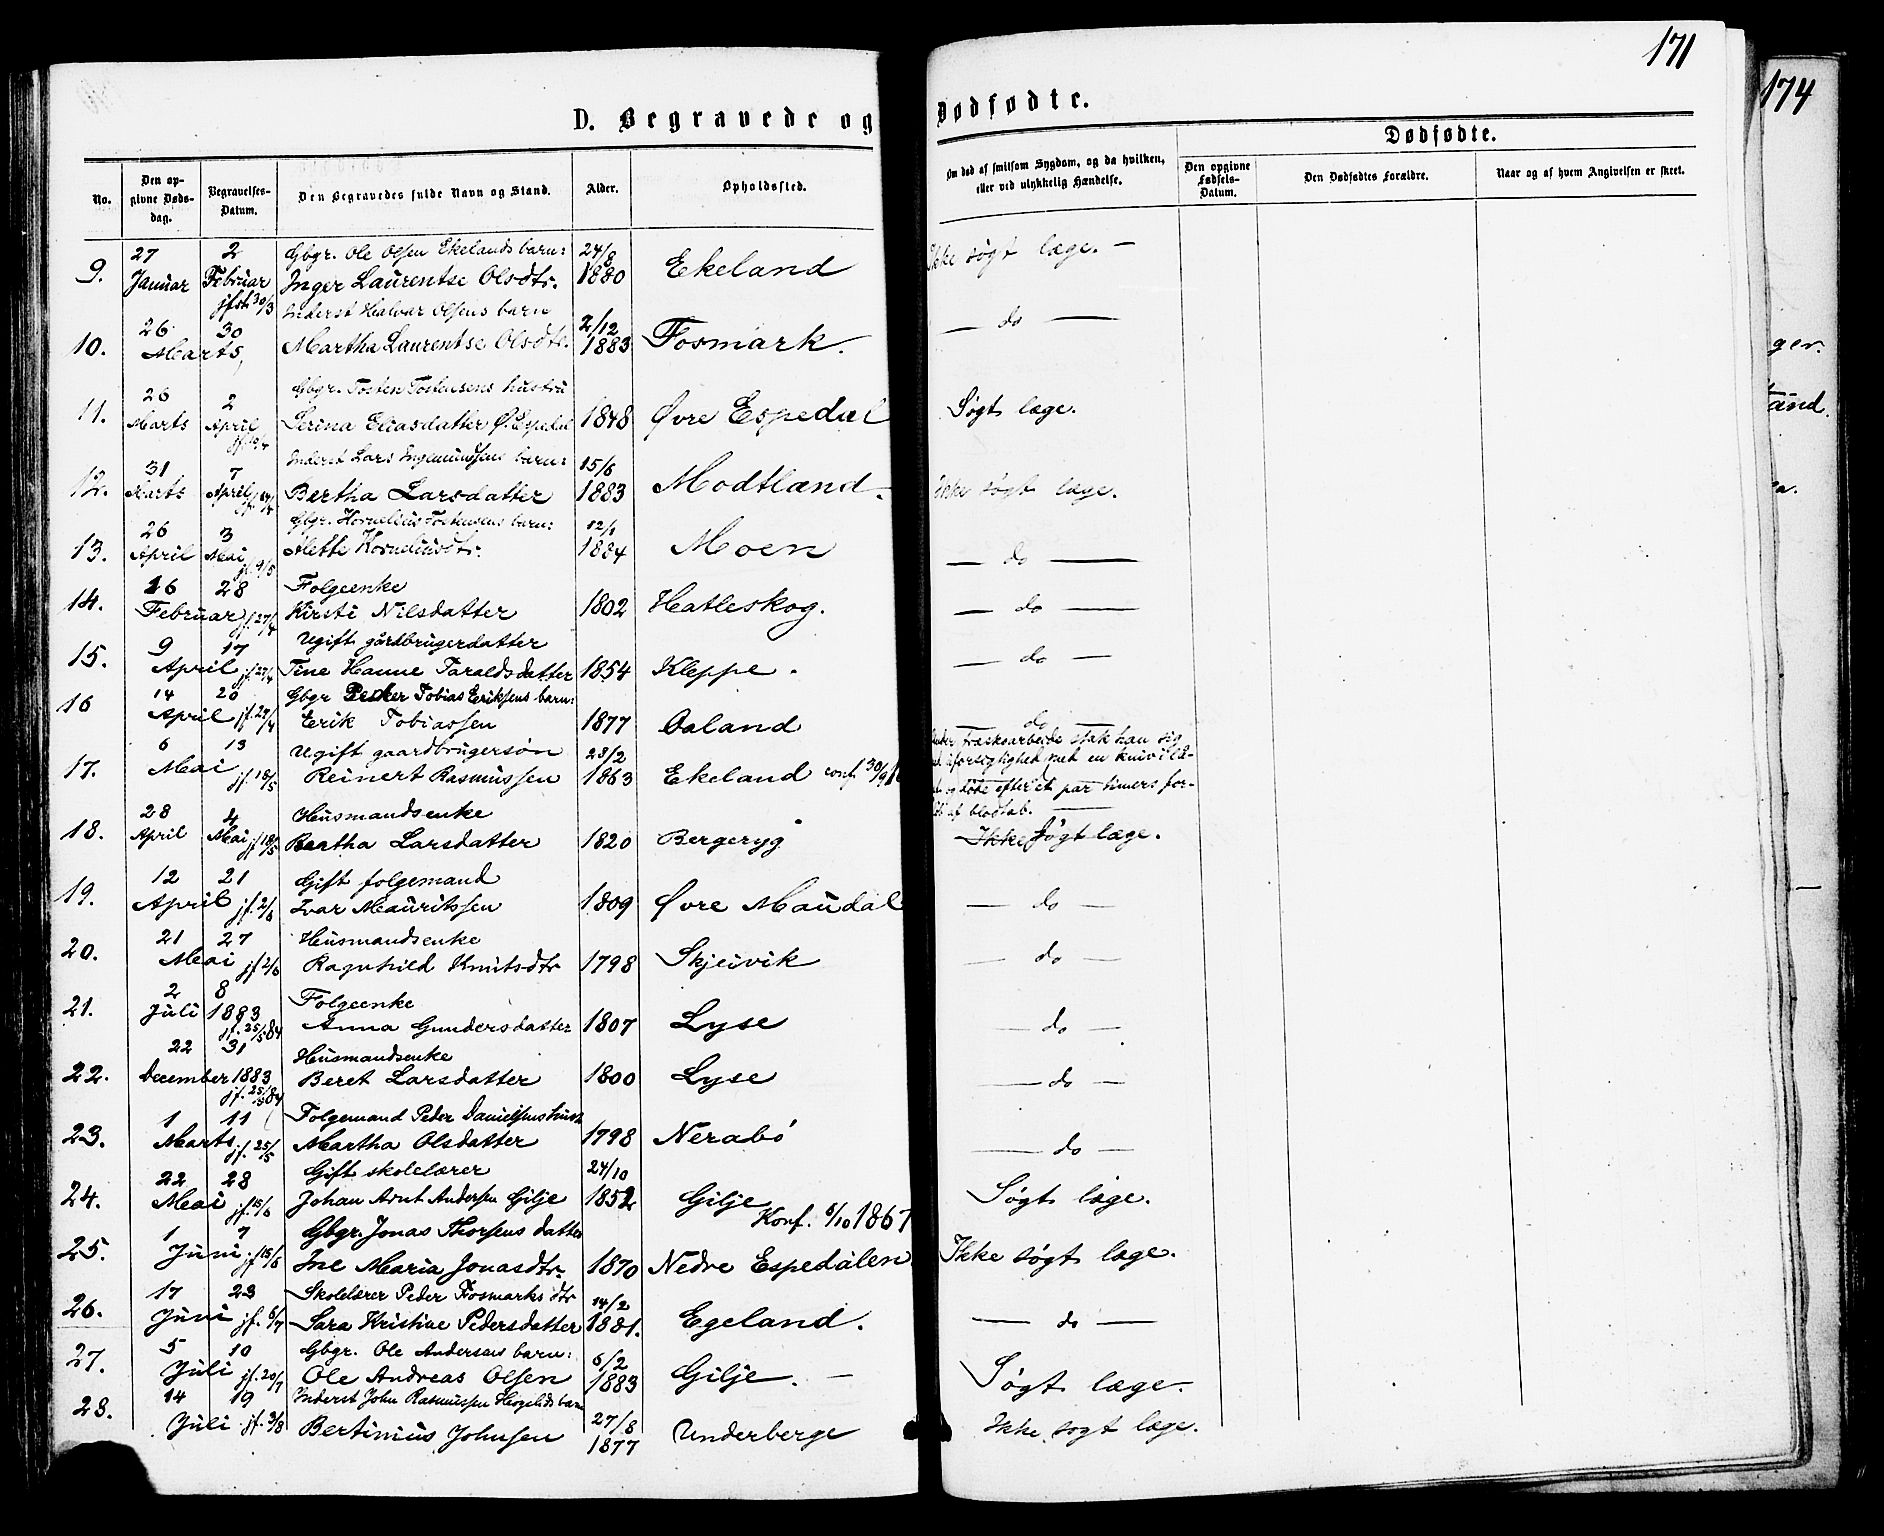 171
174
D. Begravede og Dødfødte.
Dødfødte.
No.
Den opgivne Dødsdag.
Begravelses-Datum.
Den Begravedes fulde Navn og Stand.
Alder.
Opholdssted.
Om død af smitsom Sygdom, og da hvilken, eller ved ulykkelig Hændelse.
Den opgivne Fødsels-Datum.
Den Dødfødtes Forældre.
Naar og af hvem Angivelsen er skeet.
27 2 Gbgr. Ole Olsen Ekelands barn: 24/8
9. Januar Februar Inger Laurentse Olsdtr. 1880 Ekeland Ikke søgt læge. —
jfst. 30/3 Inderst Halvor Olsens barn
26 30 2/12
10. Marts, Martha Laurentse Olsdtr. 1883 Fosmark. — do —
26 2 Gbgr. Tosten Tostensens hustru
11. Marts April Serina Eliasdatter Ø. Espedal 1848 Øvre Espedal Søgt læge.
31 7 Inderst Lars Ingemundsens barn: 15/6
12. Marts April Bertha Larsdatter 1883 Modtland. Ikke søgt læge.
26 3 Gbgr. Kornelius Tostensens barn: 12/1
13. April Mai jf. 9/5 Mette Korneliusdtr. 1884 Moen — do —
16 28 Folgeenke
14. Februar jf. 27/4 Kirsti Nilsdatter 1802 Hatleskog. — do —
9 17 Ugift gårdbrugerdatter
15. April jf. 27/4 Tine Hanne Taraldsdatter 1854 Kleppe. — do —
14 20 Gbgr Peder Tobias Eriksens barn:
16 April jf. 27/4 Erik Tobiassen 1877 Oaland — do —
6 13 Ugift gaardbrugersøn 28/2
17. Mai jf. 18/5 Reinert Rasmussen 1863 Ekeland conf. 30/9
Under træskoarbeide stak han sig
uforsigtighed med en kniv i lå-
og døde efter et par timers for-
løb af blodtab.
28 4 Husmandsenke
18. April Mai jf. 18/5 Bertha Larsdatter 1820 Bergeryg Ikke søgt læge.
12 21 Gift folgemand
19. April jf. 2/6 Ivar Mauritssen 1809 Øvre Maudal — do —
21 27 Husmandsenke
20. Mai jf. 2/6 Ragnhild Knutsdtr 1798 Skjeivik — do —
2 8 Folgeenke
21. Juli 1883 jf. 25/5 84 Anna Gundersdatter 1807 Lyse — do —
22 31 Husmandsenke
22. December 1883 jf. 25/5 84 Beret Larsdatter 1800 Lyse — do —
1 11 Folgemand Peder Danielsens hustr
23. Marts jf. 25/5 Martha Olsdatter 1798 Nerabø — do —
22 28 Gift skolelærer 24/10
24. Mai jf. 15/6 Johan Arnt Andersen Gilje 1852 Gilje Søgt læge.
Konf. 6/10 1867
1 7 Gbgr. Jonas Thorsens datter
25. Juni jf. 15/6 Ine Maria Jonasdtr. 1870 Nedre Espedalen Ikke søgt læge.
17 23 Skolelærer Peder Fosmarks dtr 14/2
26. Juni jf. 6/7 Sara Kristine Pedersdatter 1881. Egeland. — do —
5 10 Gbgr. Ole Andersens barn: 6/2
27. Juli jf. 20/7 Ole Andreas Olsen 1883 Gilje. — Søgt læge.
14 19 Inderst John Rasmussen barn 27/8
28. Juli jf. 3/8 Bertinius Johnsen 1877 Underberge Ikke søgt læge.
ger.
and.
a.